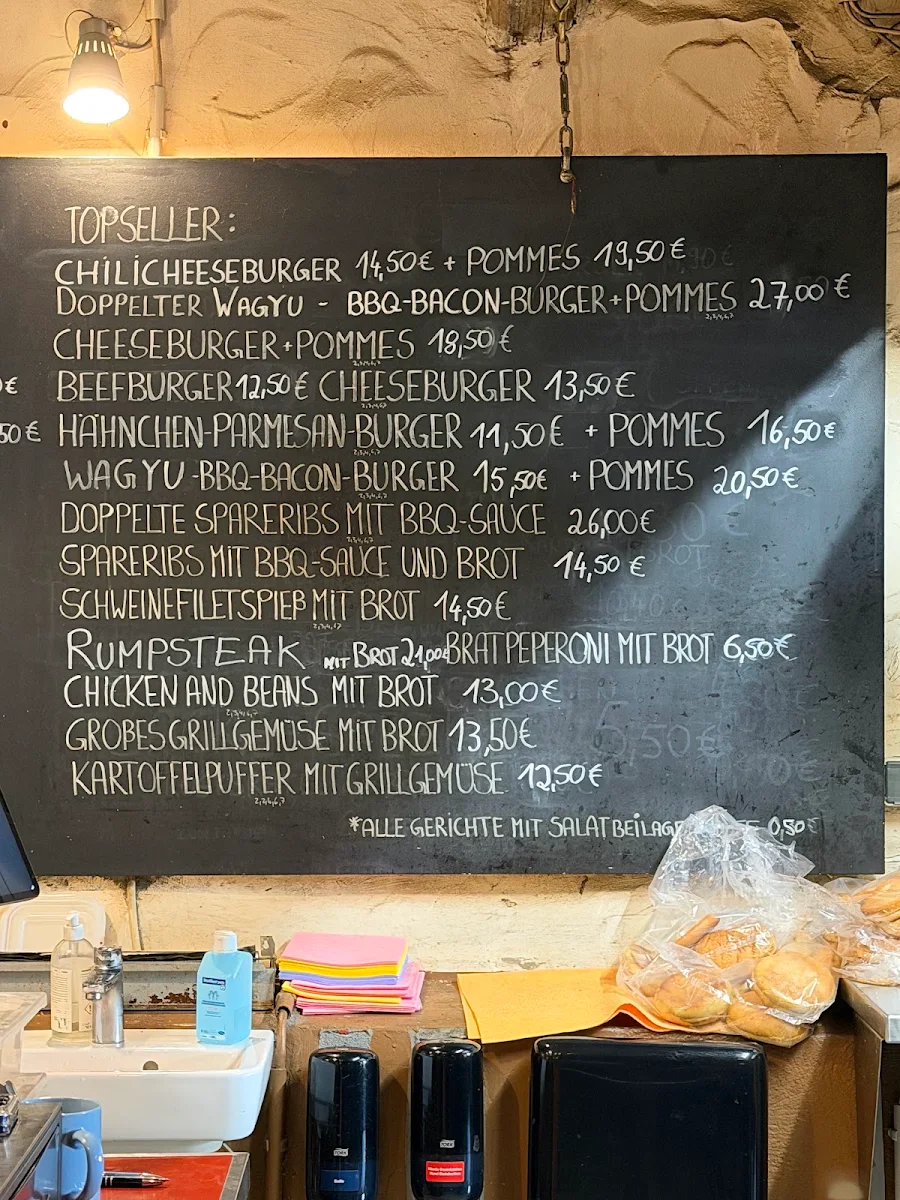 TOPSELLER:
CHILICHEESEBURGER 14,50€ + POMMES 19,50€
DOPPELTER WAGYU - BBQ-BACON-BURGER+POMMES 27,00€
CHEESEBURGER+POMMES 18,50€
€ BEEFBURGER 12,50€ CHEESEBURGER 13,50€
50€ HÄHNCHEN-PARMESAN-BURGER 11,50€ + POMMES 16,50€
WAGYU-BBQ-BACON-BURGER 15,50€ + POMMES 20,50€
DOPPELTE SPARERIBS MIT BBQ-SAUCE 26,00€
SPARERIBS MIT BBQ-SAUCE UND BROT 14,50€
SCHWEINEFILETSPIEß MIT BROT 14,50€
RUMPSTEAK MIT BROT 21,00€ BRATPEPERONI MIT BROT 6,50€
CHICKEN AND BEANS MIT BROT 13,00€
GROBES GRILLGEMÜSE MIT BROT 13,50€
KARTOFFELPUFFER MIT GRILLGEMÜSE 12,50€
*ALLE GERICHTE MIT SALATBEILAGE 0,50€
TORK
TORK